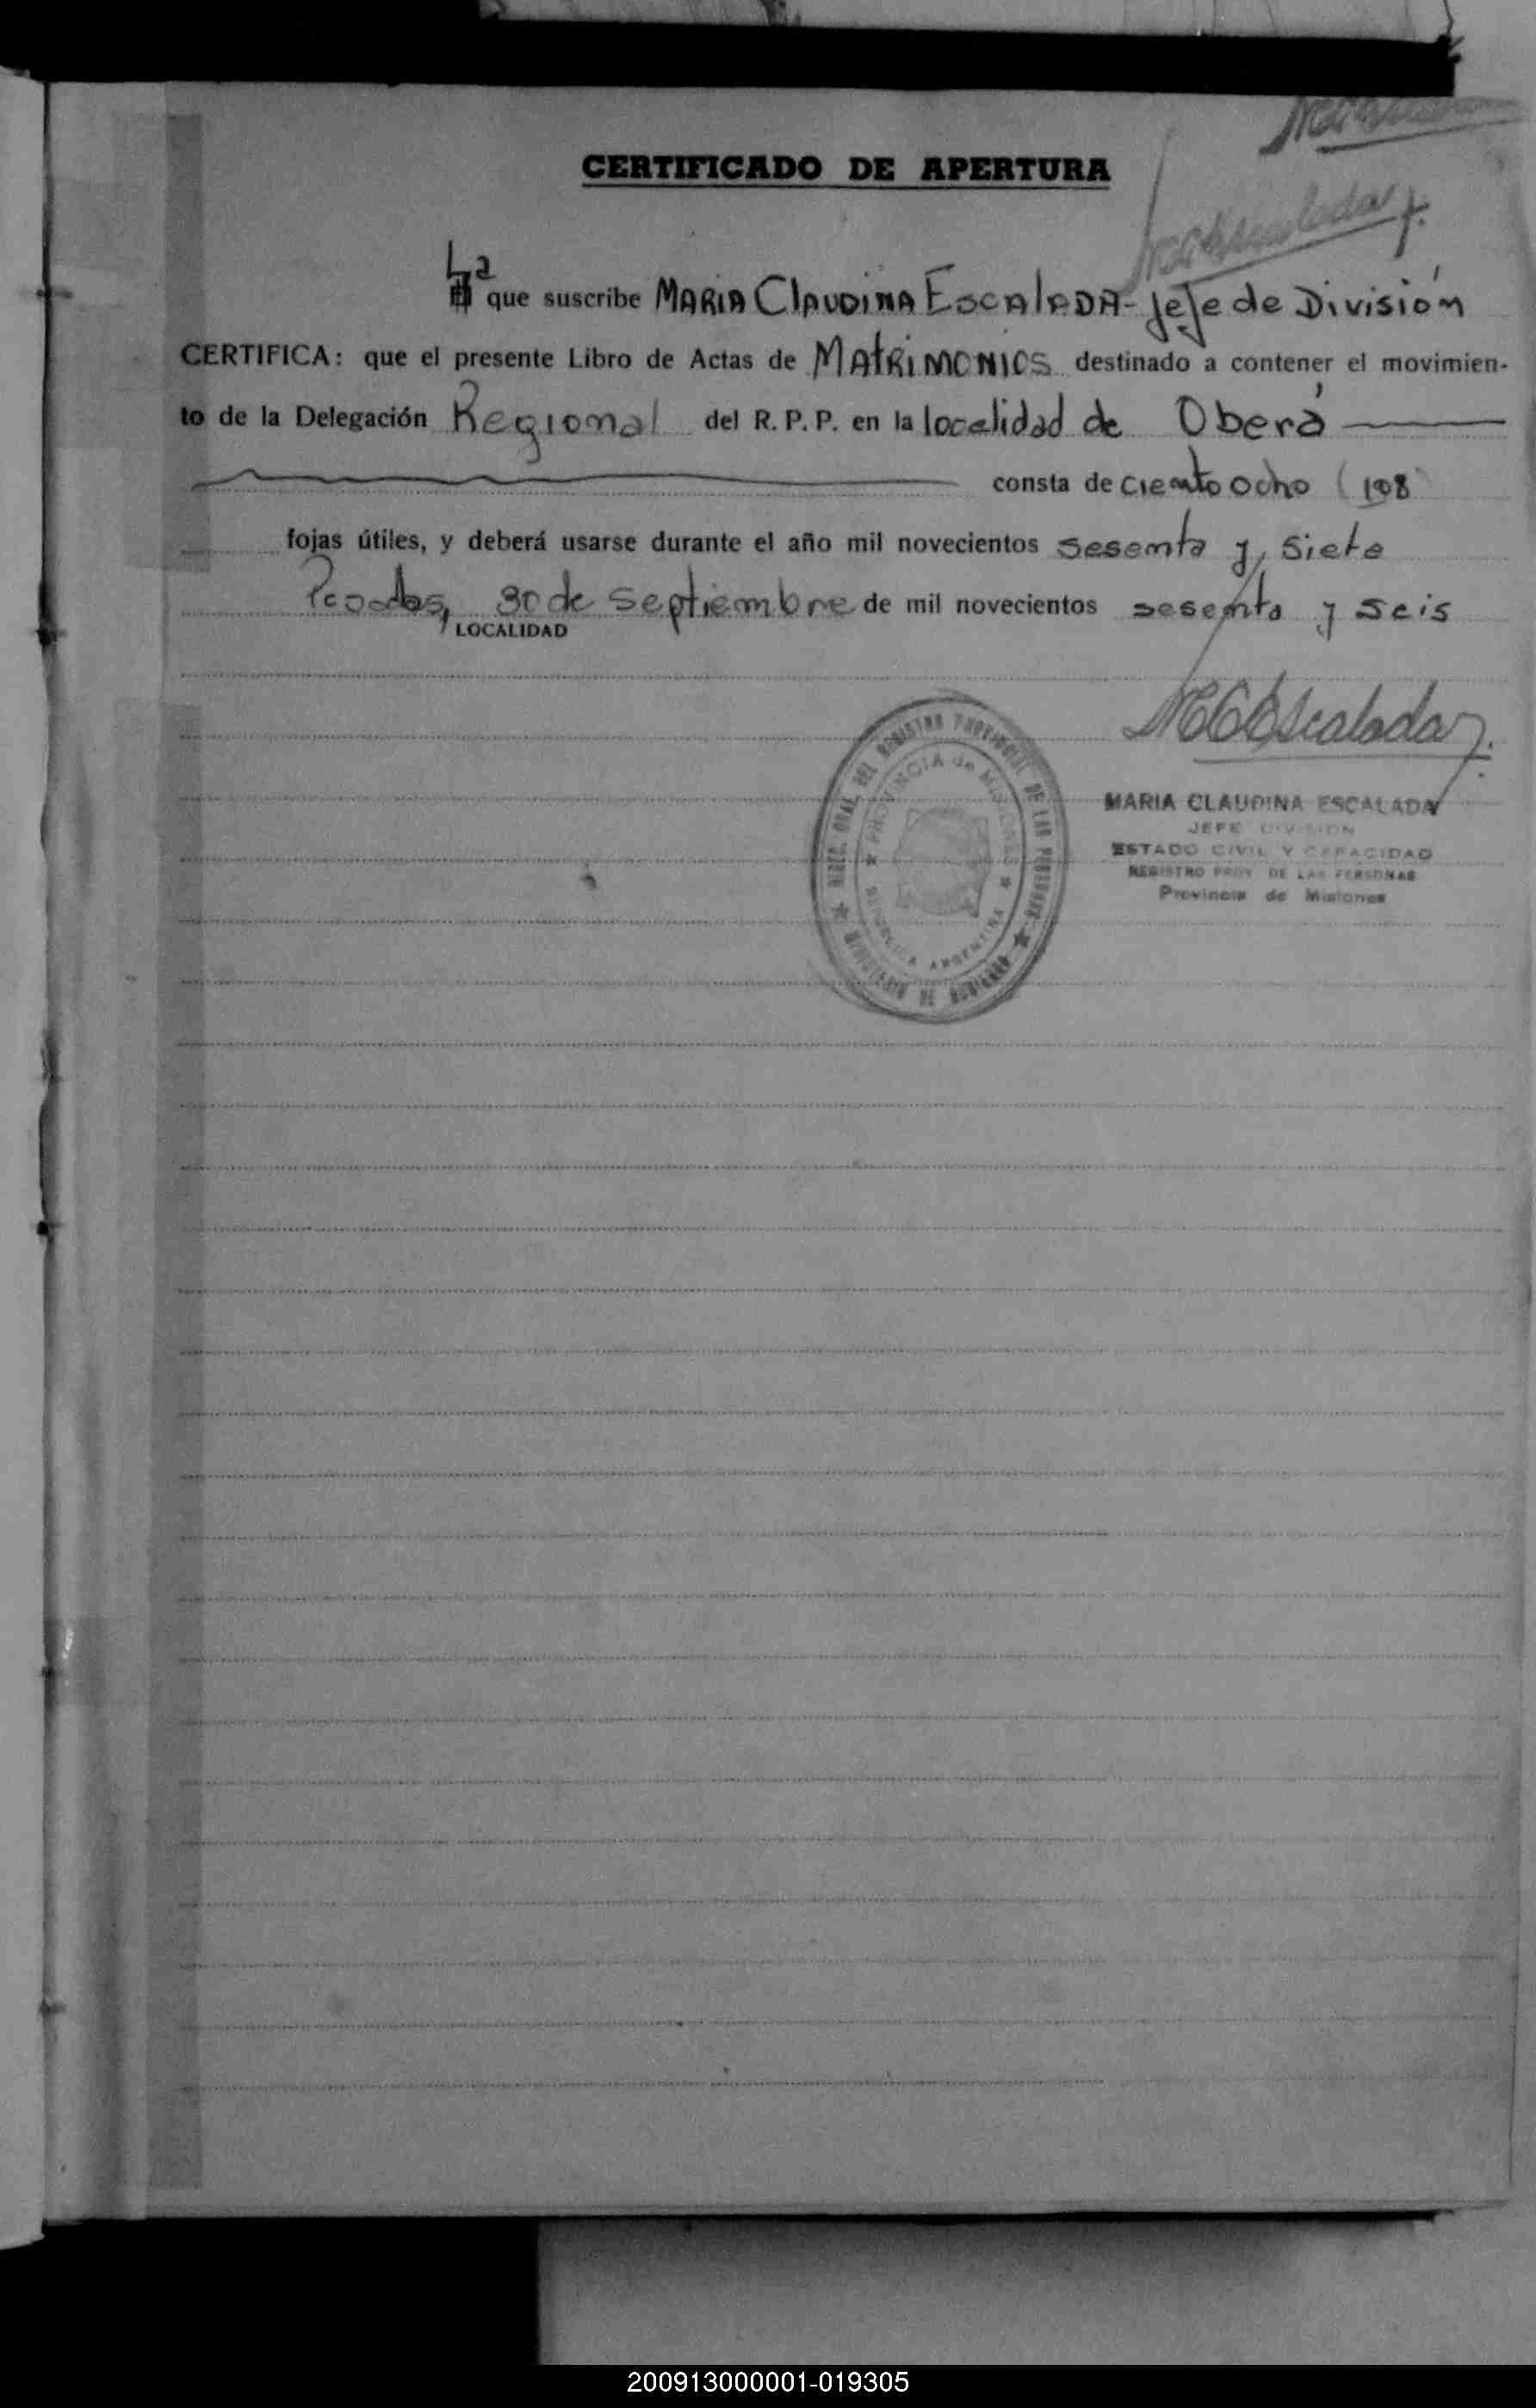 CERTIFICADO DE APERTURA
MCEscalada
La que suscribe MARIA CLAUDINA EscAlADA - Jefe de División
CERTIFICA: que el presente Libro de Actas de MAtRiMONIOS destinado a contener el movimien-
to de la Delegación Regional del R. P. P. en la localidad de Oberá
consta de ciento ocho (108
fojas útiles, y deberá usarse durante el año mil novecientos sesenta y siete
Posadas, 30 de septiembre de mil novecientos sesenta y seis
LOCALIDAD
MCEscalada
MARIA CLAUDINA ESCALADA
JEFE DIVISION
ESTADO CIVIL Y CAPACIDAD
REGISTRO PROV DE LAS PERSONAS
Provincia de Misiones
DIREC. GRAL DEL REGISTRO PROVINCIAL DE LAS PERSONAS
MINISTERIO DE GOBIERNO
PROVINCIA de MISIONES
REPUBLICA ARGENTINA
200913000001-019305